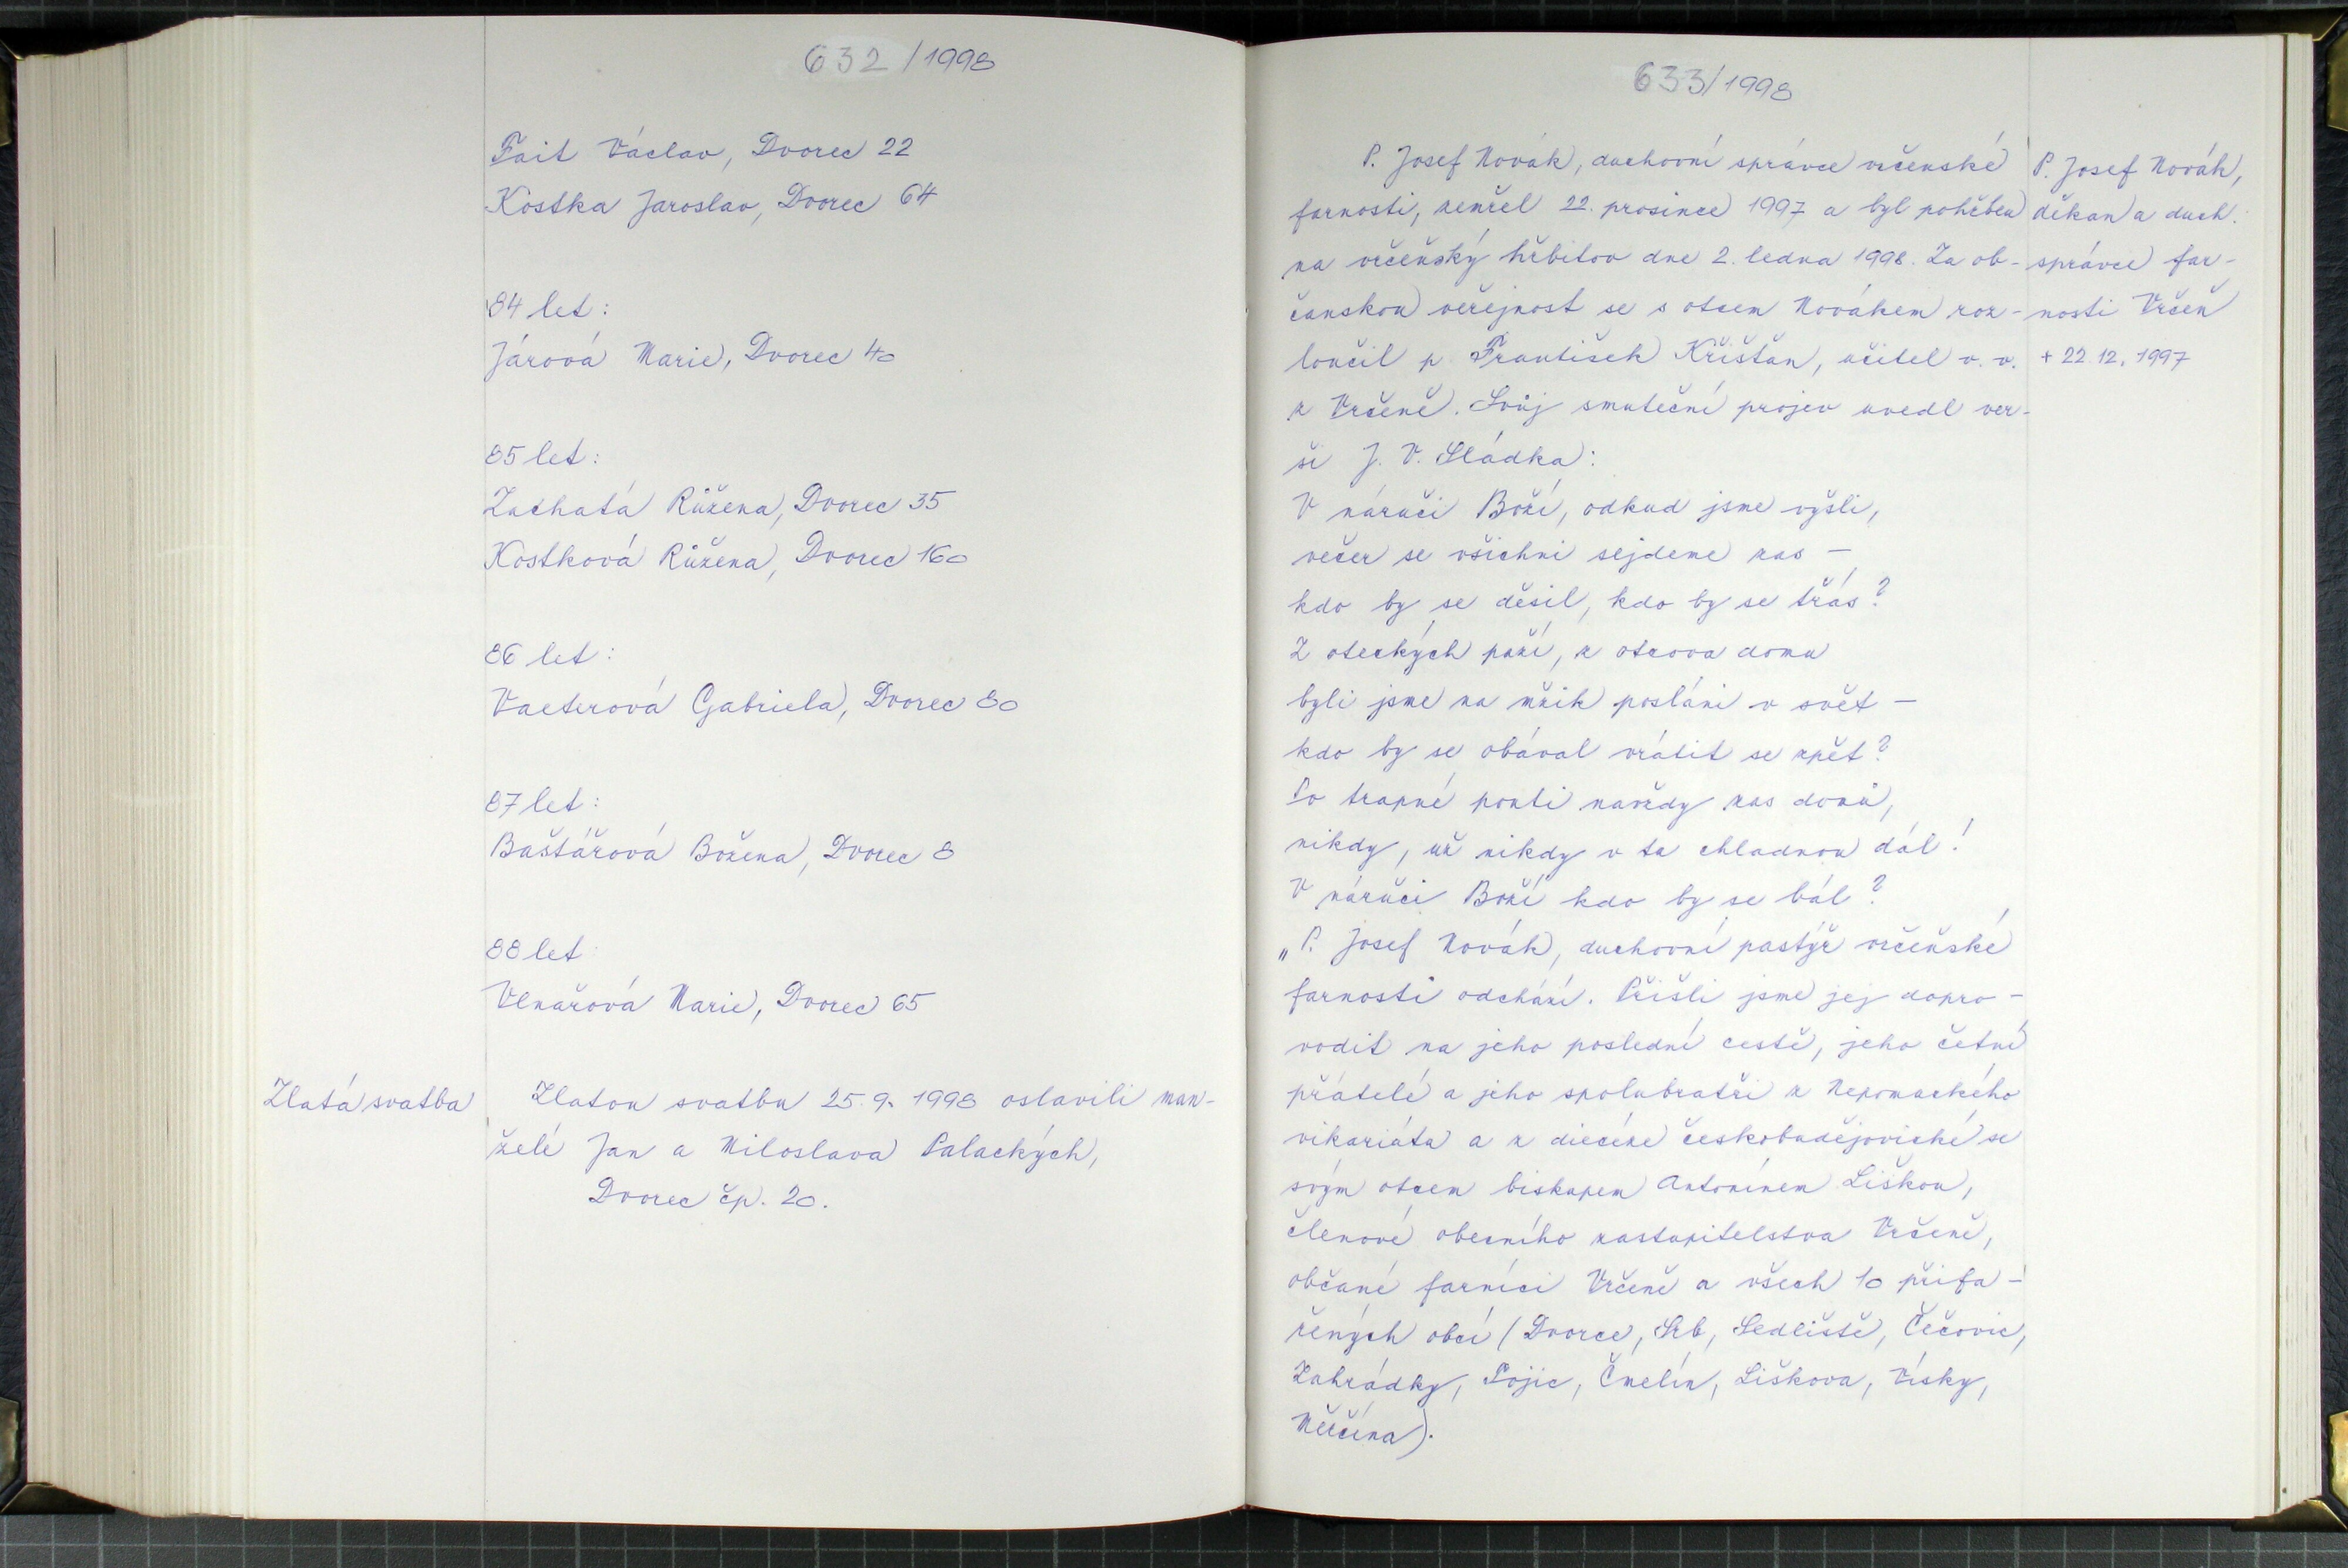 632/1998
Fait Václav, Dvorec 22
Kostka Jaroslav, Dvorec 64
84 let:
Járová Marie, Dvorec 40
85 let:
Zachatá Růžena, Dvorec 35
Kostková Růžena, Dvorec 160
86 let:
Vacterová Gabriela, Dvorec 80
87 let:
Baštářová Božena, Dvorec 8
88 let:
Vlnařová Marie, Dvorec 65
Zlatá svatba
Zlatou svatbu 25.9. 1998 oslavili man-
želé Jan a Miloslava Palackých,
Dvorec čp. 20.
633/1998
P. Josef Novák, duchovní správce vrčenské
farnosti, zemřel 22. prosince 1997 a byl pohřben
na vrčeňský hřbitov dne 2. ledna 1998. Za ob-
čanskou veřejnost se s otcem Novákem roz-
loučil p. František Křišťan, učitel v. v.
z Vrčeně. Svůj smuteční projev uvedl ver-
ši J. V. Sládka:
V náruči Boží, odkud jsme vyšli,
večer se všichni sejdeme zas –
kdo by se děsil, kdo by se třás?
Z oteckých paží, z otcova domu
byli jsme na mžik posláni v svět –
kdo by se obával vrátit se zpět?
Po trapné pouti navždy zas domů,
nikdy, už nikdy v tu chladnou dál!
V náruči Boží kdo by se bál?
„P. Josef Novák, duchovní pastýř vrčeňské
farnosti odchází. Přišli jsme jej dopro-
vodit na jeho poslední cestě, jeho četní
přátelé a jeho spolubratři z Nepomuckého
vikariátu a z diecéze českobudějovické se
svým otcem biskupem Antonínem Liškou,
členové obecního zastupitelstva Vrčeně,
občané farníci Vrčeně a všech 10 přifa-
řených obcí (Dvorce, Srb, Sedliště, Čečovic,
Zahrádky, Polic, Čmelín, Liškova, Vísky,
Měrčína).
P. Josef Novák,
děkan a duch.
správce far-
nosti Vrčeň
+ 22.12.1997